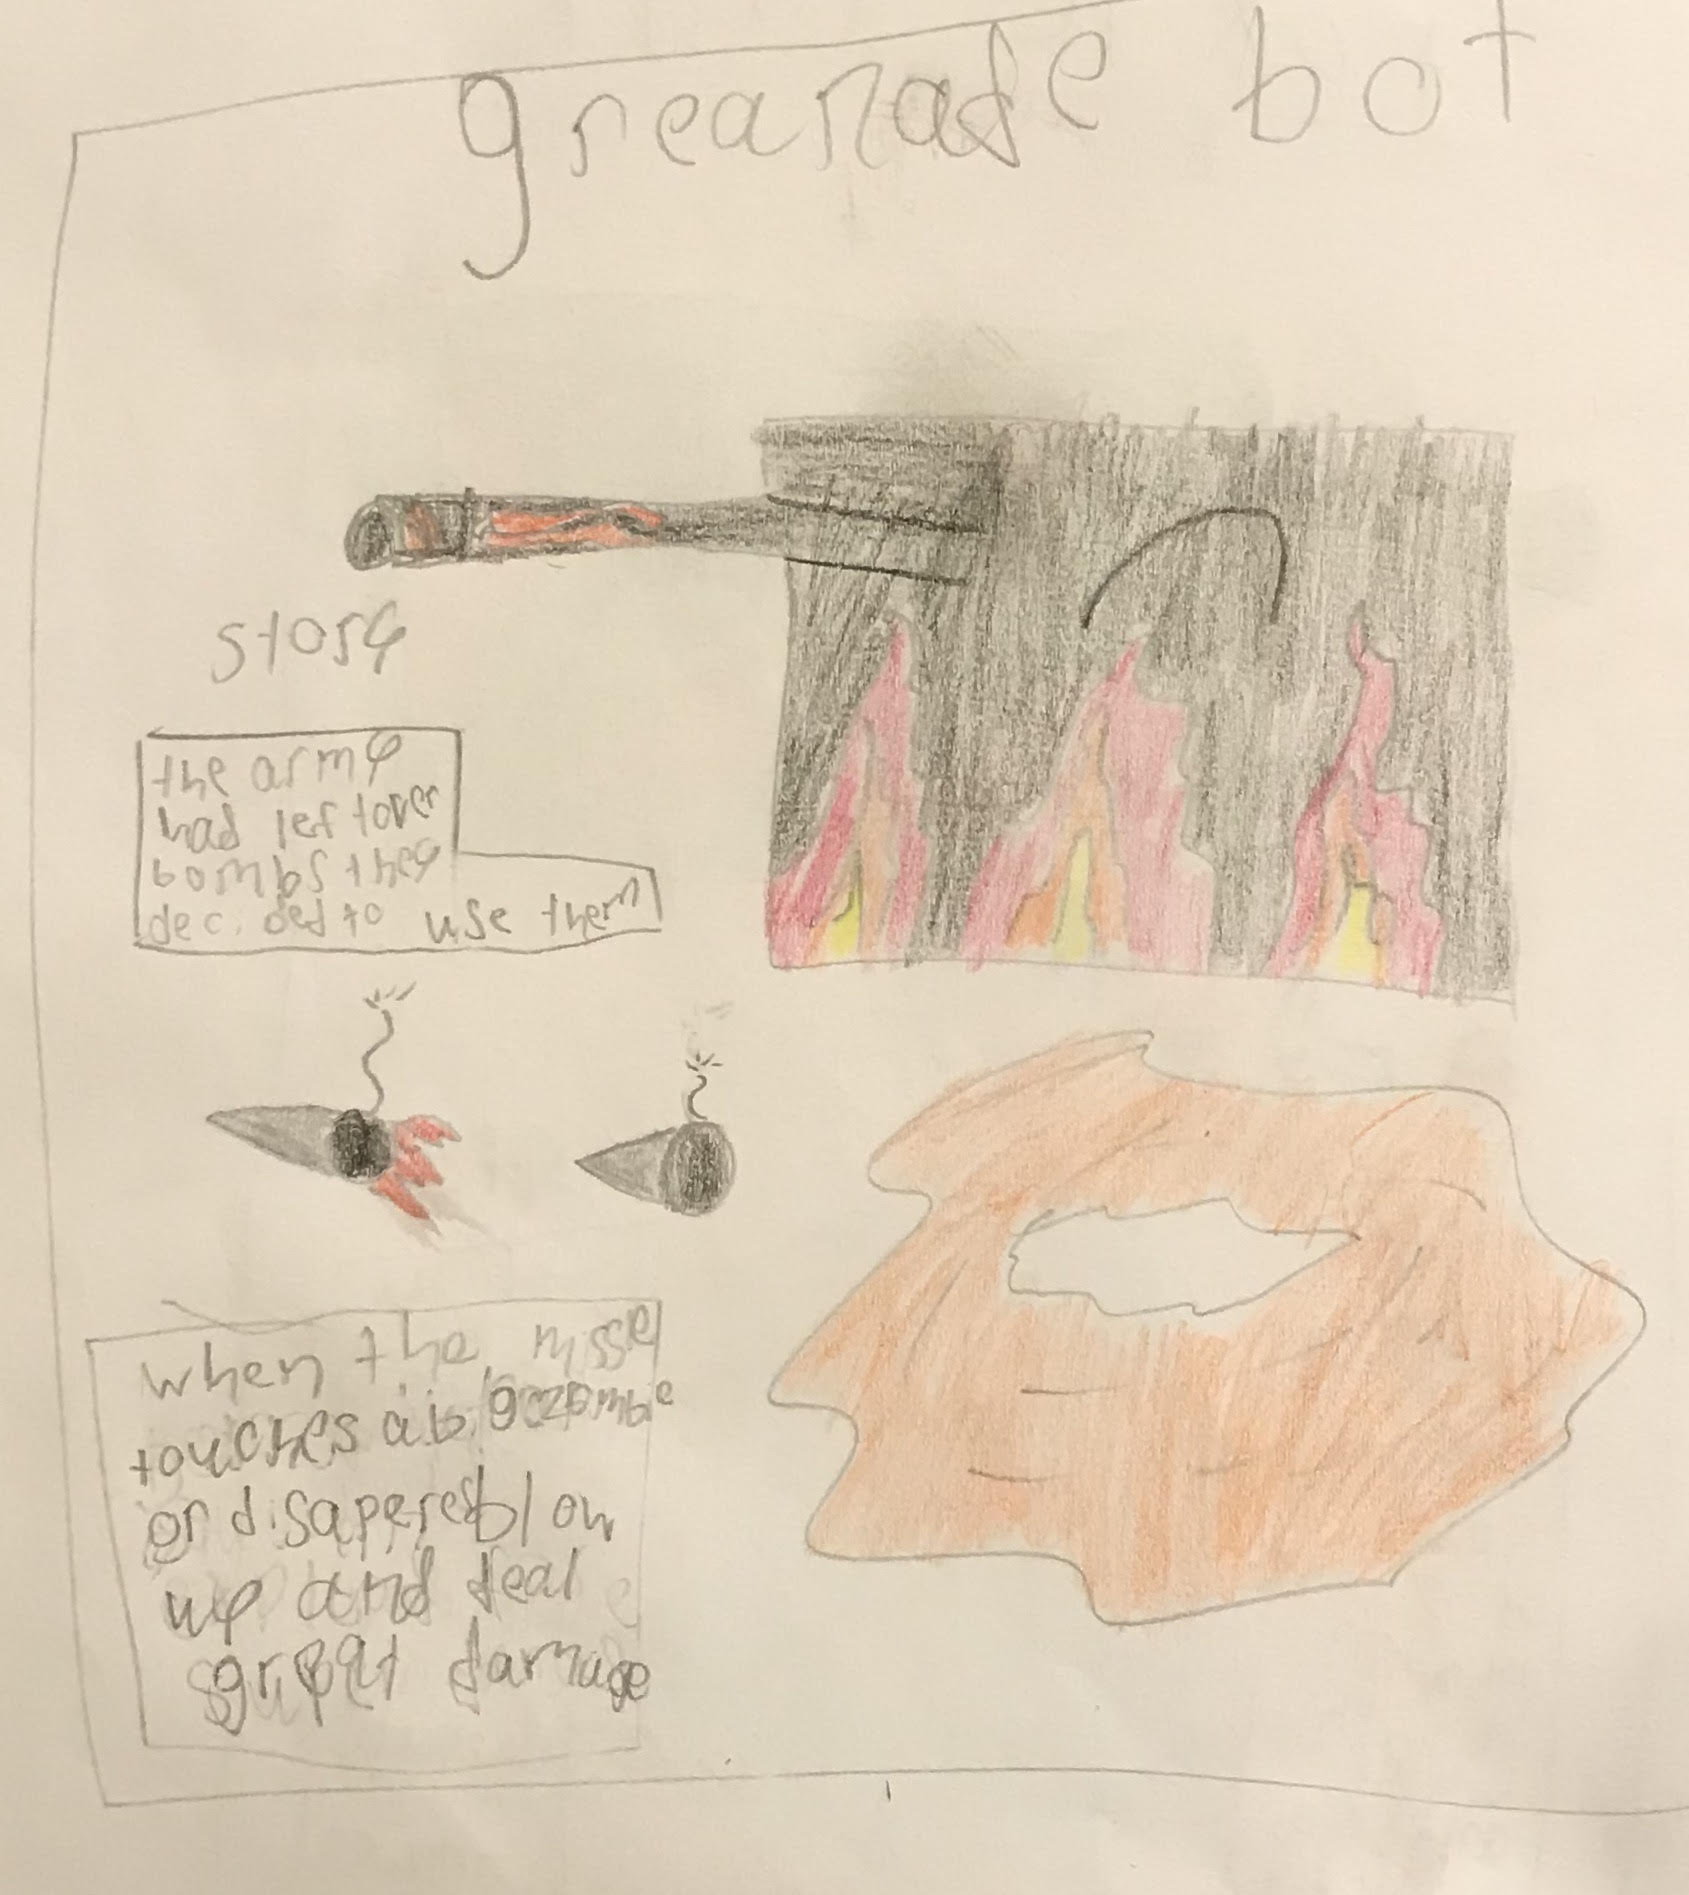 greanade bot
story
the army
had leftover
bombs they
decided to use them
when the missel
touches a big zombie
or disaperes blow
up and deal
great damage